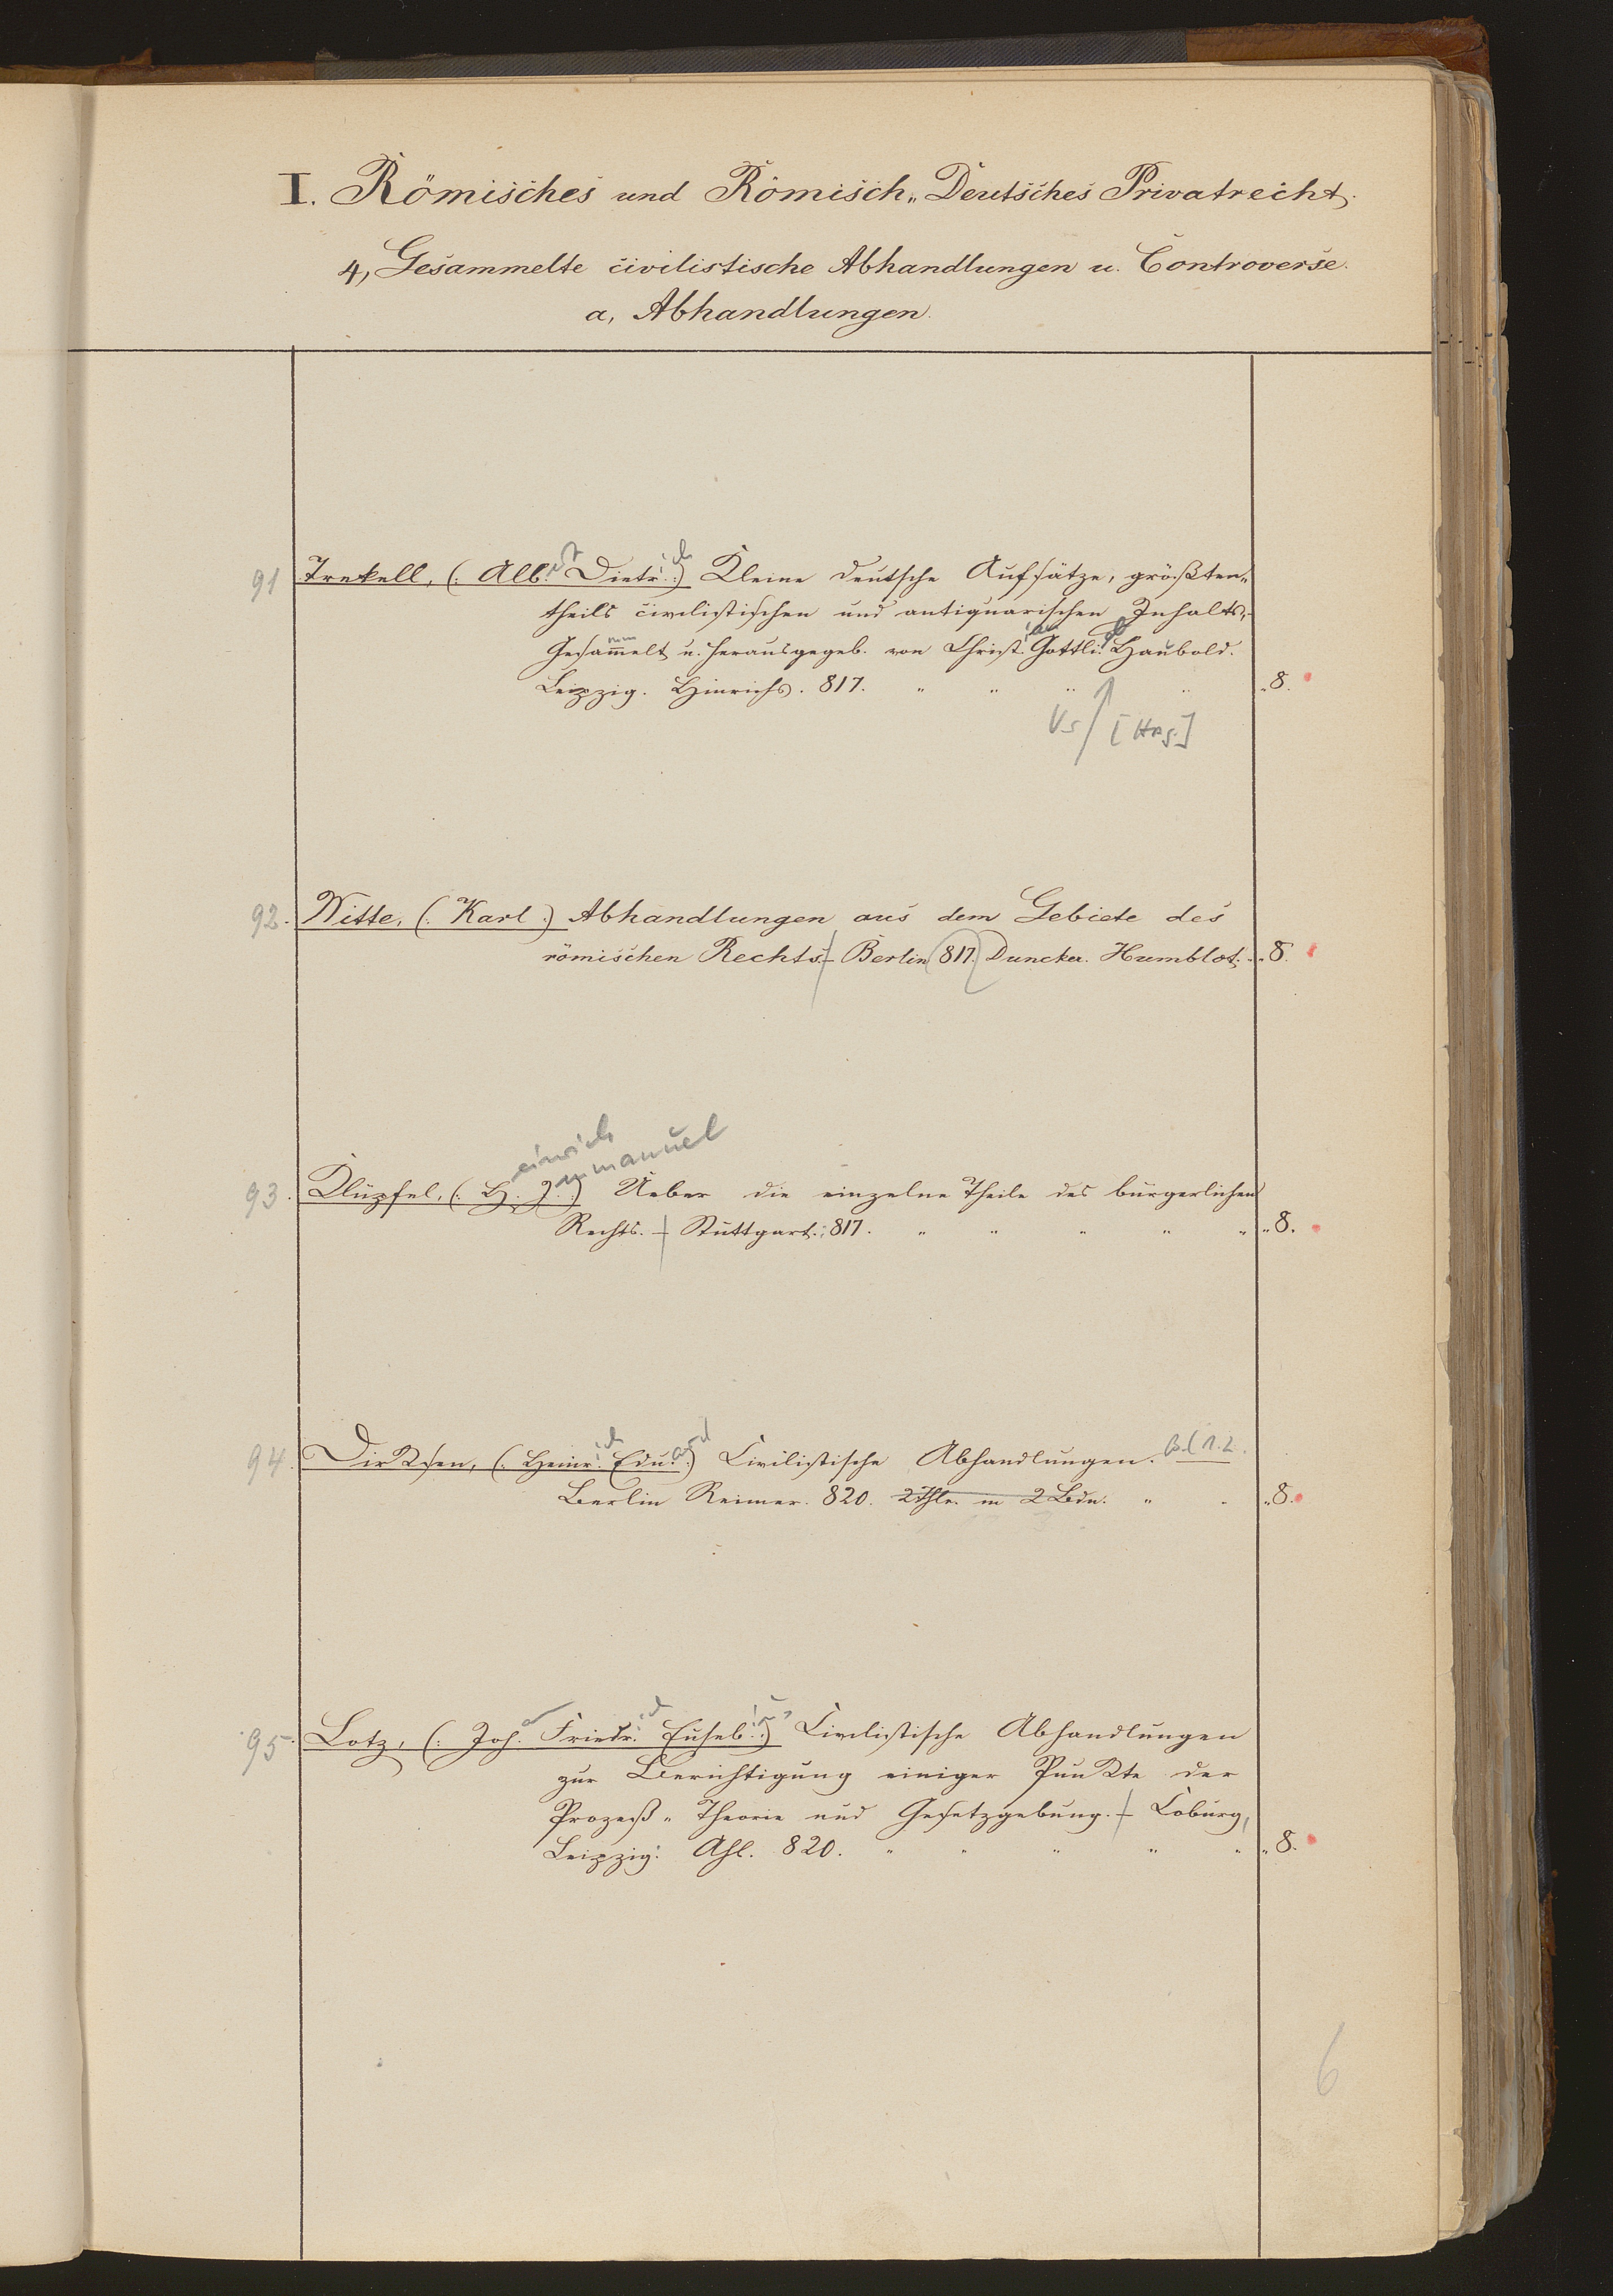 I. Römisches und Römisch„ Deutsches Privatrecht.
4, Gesammelte civilistische Abhandlungen u. Controverse.
a, Abhandlungen.
91 Trekell, (: Alb. Dietr. :) Kleine deutsche Aufsätze, größten„
theils civilistischen und antiquarischen Inhalts.
Gesammelt u. herausgegeb. von Christ. Gottli. Haubold.
Leipzig. Hinrichs. 817. „ „ „ „ „ 8.
Vs / [Hrsg.]
92. Witte, (: Karl :) Abhandlungen aus dem Gebiete des
römischen Rechts. – Berlin 817. Duncker. Humblot. „ 8.
einrich
mmanuel
93. Klüpfel, (: H. I. :) Ueber die einzelne Theile des bürgerlichen
Rechts. – Stuttgart. 817. „ „ „ „ „ „ 8.
94. Dirksen, (: Heinr. Edu. :) Civilistische Abhandlungen. Bd 1.2.
Berlin Reimer. 820. 2 Thle. in 2 Bdn. „ „ „ 8.
95. Lotz, (: Joh. Friedr. Euseb. :) Civilistische Abhandlungen
zur Berichtigung einiger Punkte der
Prozeß„ Theorie und Gesetzgebung. – Coburg,
Leipzig: Ahl. 820. „ „ „ „ „ „ 8.
6